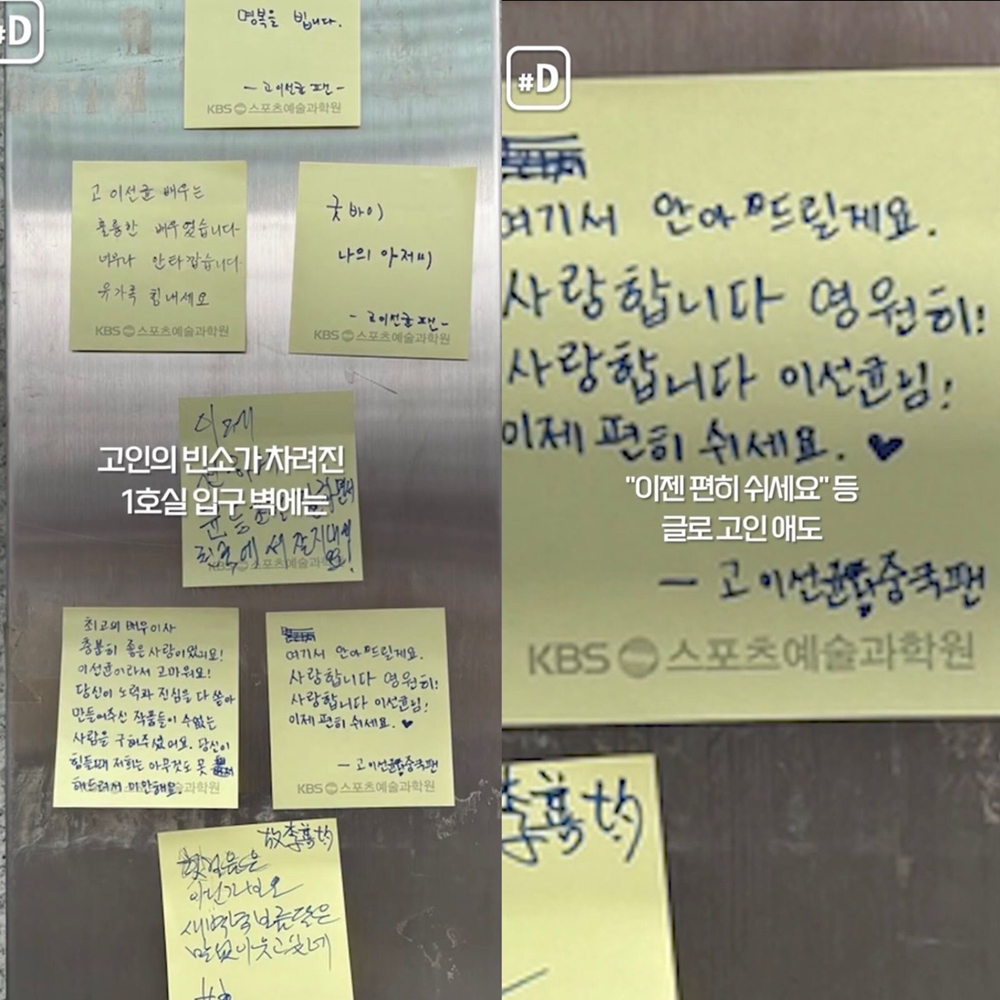 #D
명복을 빕니다.
- 고 이선균 팬 -
KBS 스포츠예술과학원
고 이선균 배우는
훌륭한 배우였습니다
너무나 안타깝습니다
유가족 힘내세요
KBS 스포츠예술과학원
굿바이
나의 아저씨
- 고 이선균 팬 -
KBS 스포츠예술과학원
이제
고인의 빈소가 차려진
1호실 입구 벽에는
에서 잘 지내세요!
스포츠예술과학원
최고의 배우이자
충분히 좋은 사람이었어요!
이선균이라서 고마워요!
당신이 노력과 진심을 다 쏟아
만들어주신 작품들이 수없는
사람을 구해주셨어요. 당신이
힘들때 저희는 아무것도 못
해드려서 미안해요.
여기서 안아드릴게요.
사랑합니다 영원히!
사랑합니다 이선균님!
이제 편히 쉬세요. ♥
- 고 이선균 중국팬
KBS 스포츠예술과학원
故李善均
새벽녘 보름달은
말없이 웃고 있네
#D
여기서 안아드릴게요.
사랑합니다 영원히!
사랑합니다 이선균님!
이제 편히 쉬세요. ♥
"이젠 편히 쉬세요" 등
글로 고인 애도
- 고 이선균 중국팬
KBS 스포츠예술과학원
李善均